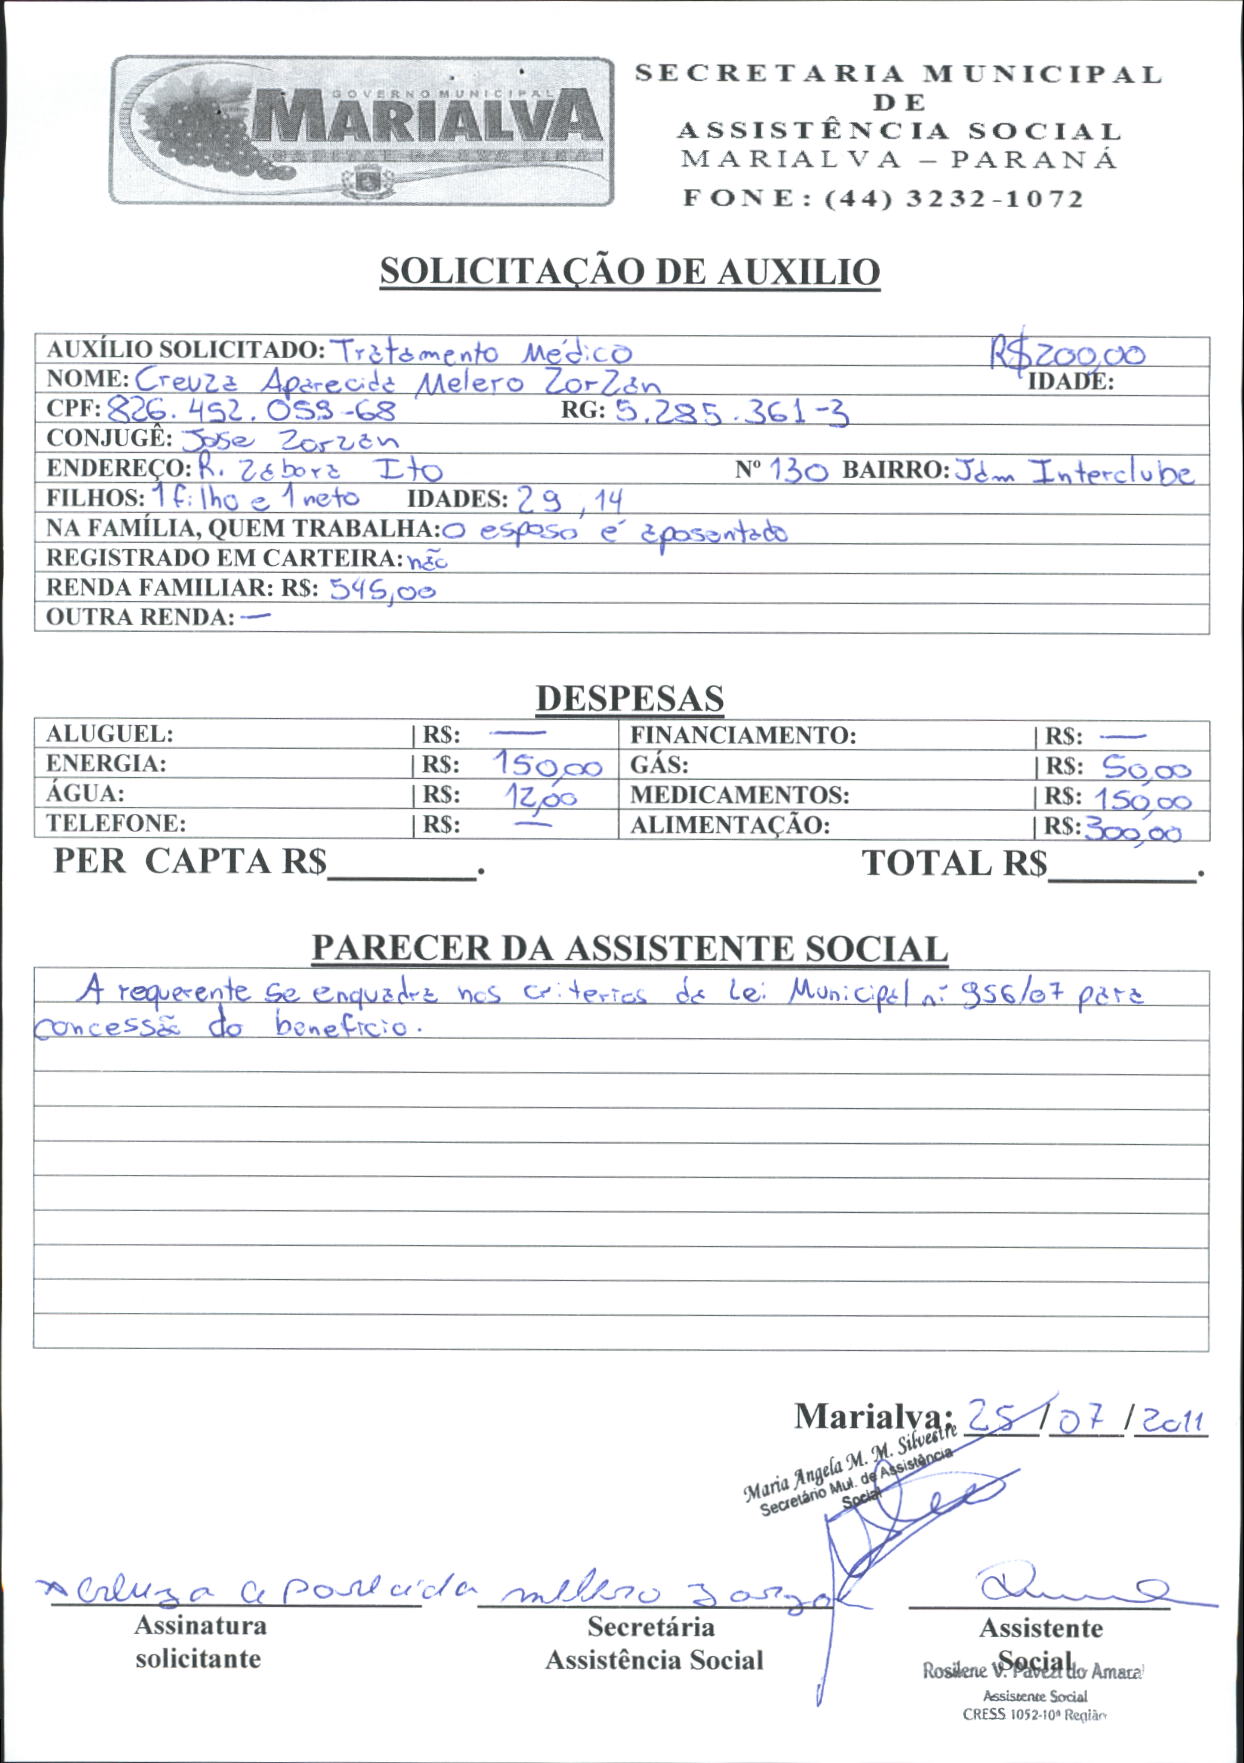 GOVERNO MUNICIPAL
MARIALVA
SECRETARIA MUNICIPAL
DE
ASSISTÊNCIA SOCIAL
MARIALVA – PARANÁ
FONE: (44) 3232-1072
SOLICITAÇÃO DE AUXILIO
AUXÍLIO SOLICITADO: Tratamento Médico R$200,00
NOME: Creuza Aparecida Melero Zorzan IDADE:
CPF: 826.452.059-68 RG: 5.285.361-3
CONJUGÊ: Jose Zorzan
ENDEREÇO: R. Zabora Ito Nº 130 BAIRRO: Jdm Interclube
FILHOS: 1 filho e 1 neto IDADES: 29, 14
NA FAMÍLIA, QUEM TRABALHA: O esposo é aposentado
REGISTRADO EM CARTEIRA: não
RENDA FAMILIAR: R$: 545,00
OUTRA RENDA: —
DESPESAS
ALUGUEL: | R$: — FINANCIAMENTO: | R$: —
ENERGIA: | R$: 150,00 GÁS: | R$: 50,00
ÁGUA: | R$: 12,00 MEDICAMENTOS: | R$: 150,00
TELEFONE: | R$: — ALIMENTAÇÃO: | R$: 300,00
PER CAPTA R$________. TOTAL R$________.
PARECER DA ASSISTENTE SOCIAL
A requerente se enquadra nos criterios da Lei Municipal nº 956/07 para
concessão do beneficio.
Marialva: 25/07/2011
Maria Angela M. M. Silvestre
Secretário Mul. de Assistência
Social
Creuza aparecida mellero zorzan
Assinatura Secretária Assistente
solicitante Assistência Social Social
Rosilene V. Pavezi do Amaral
Assistente Social
CRESS 1052-10ª Região